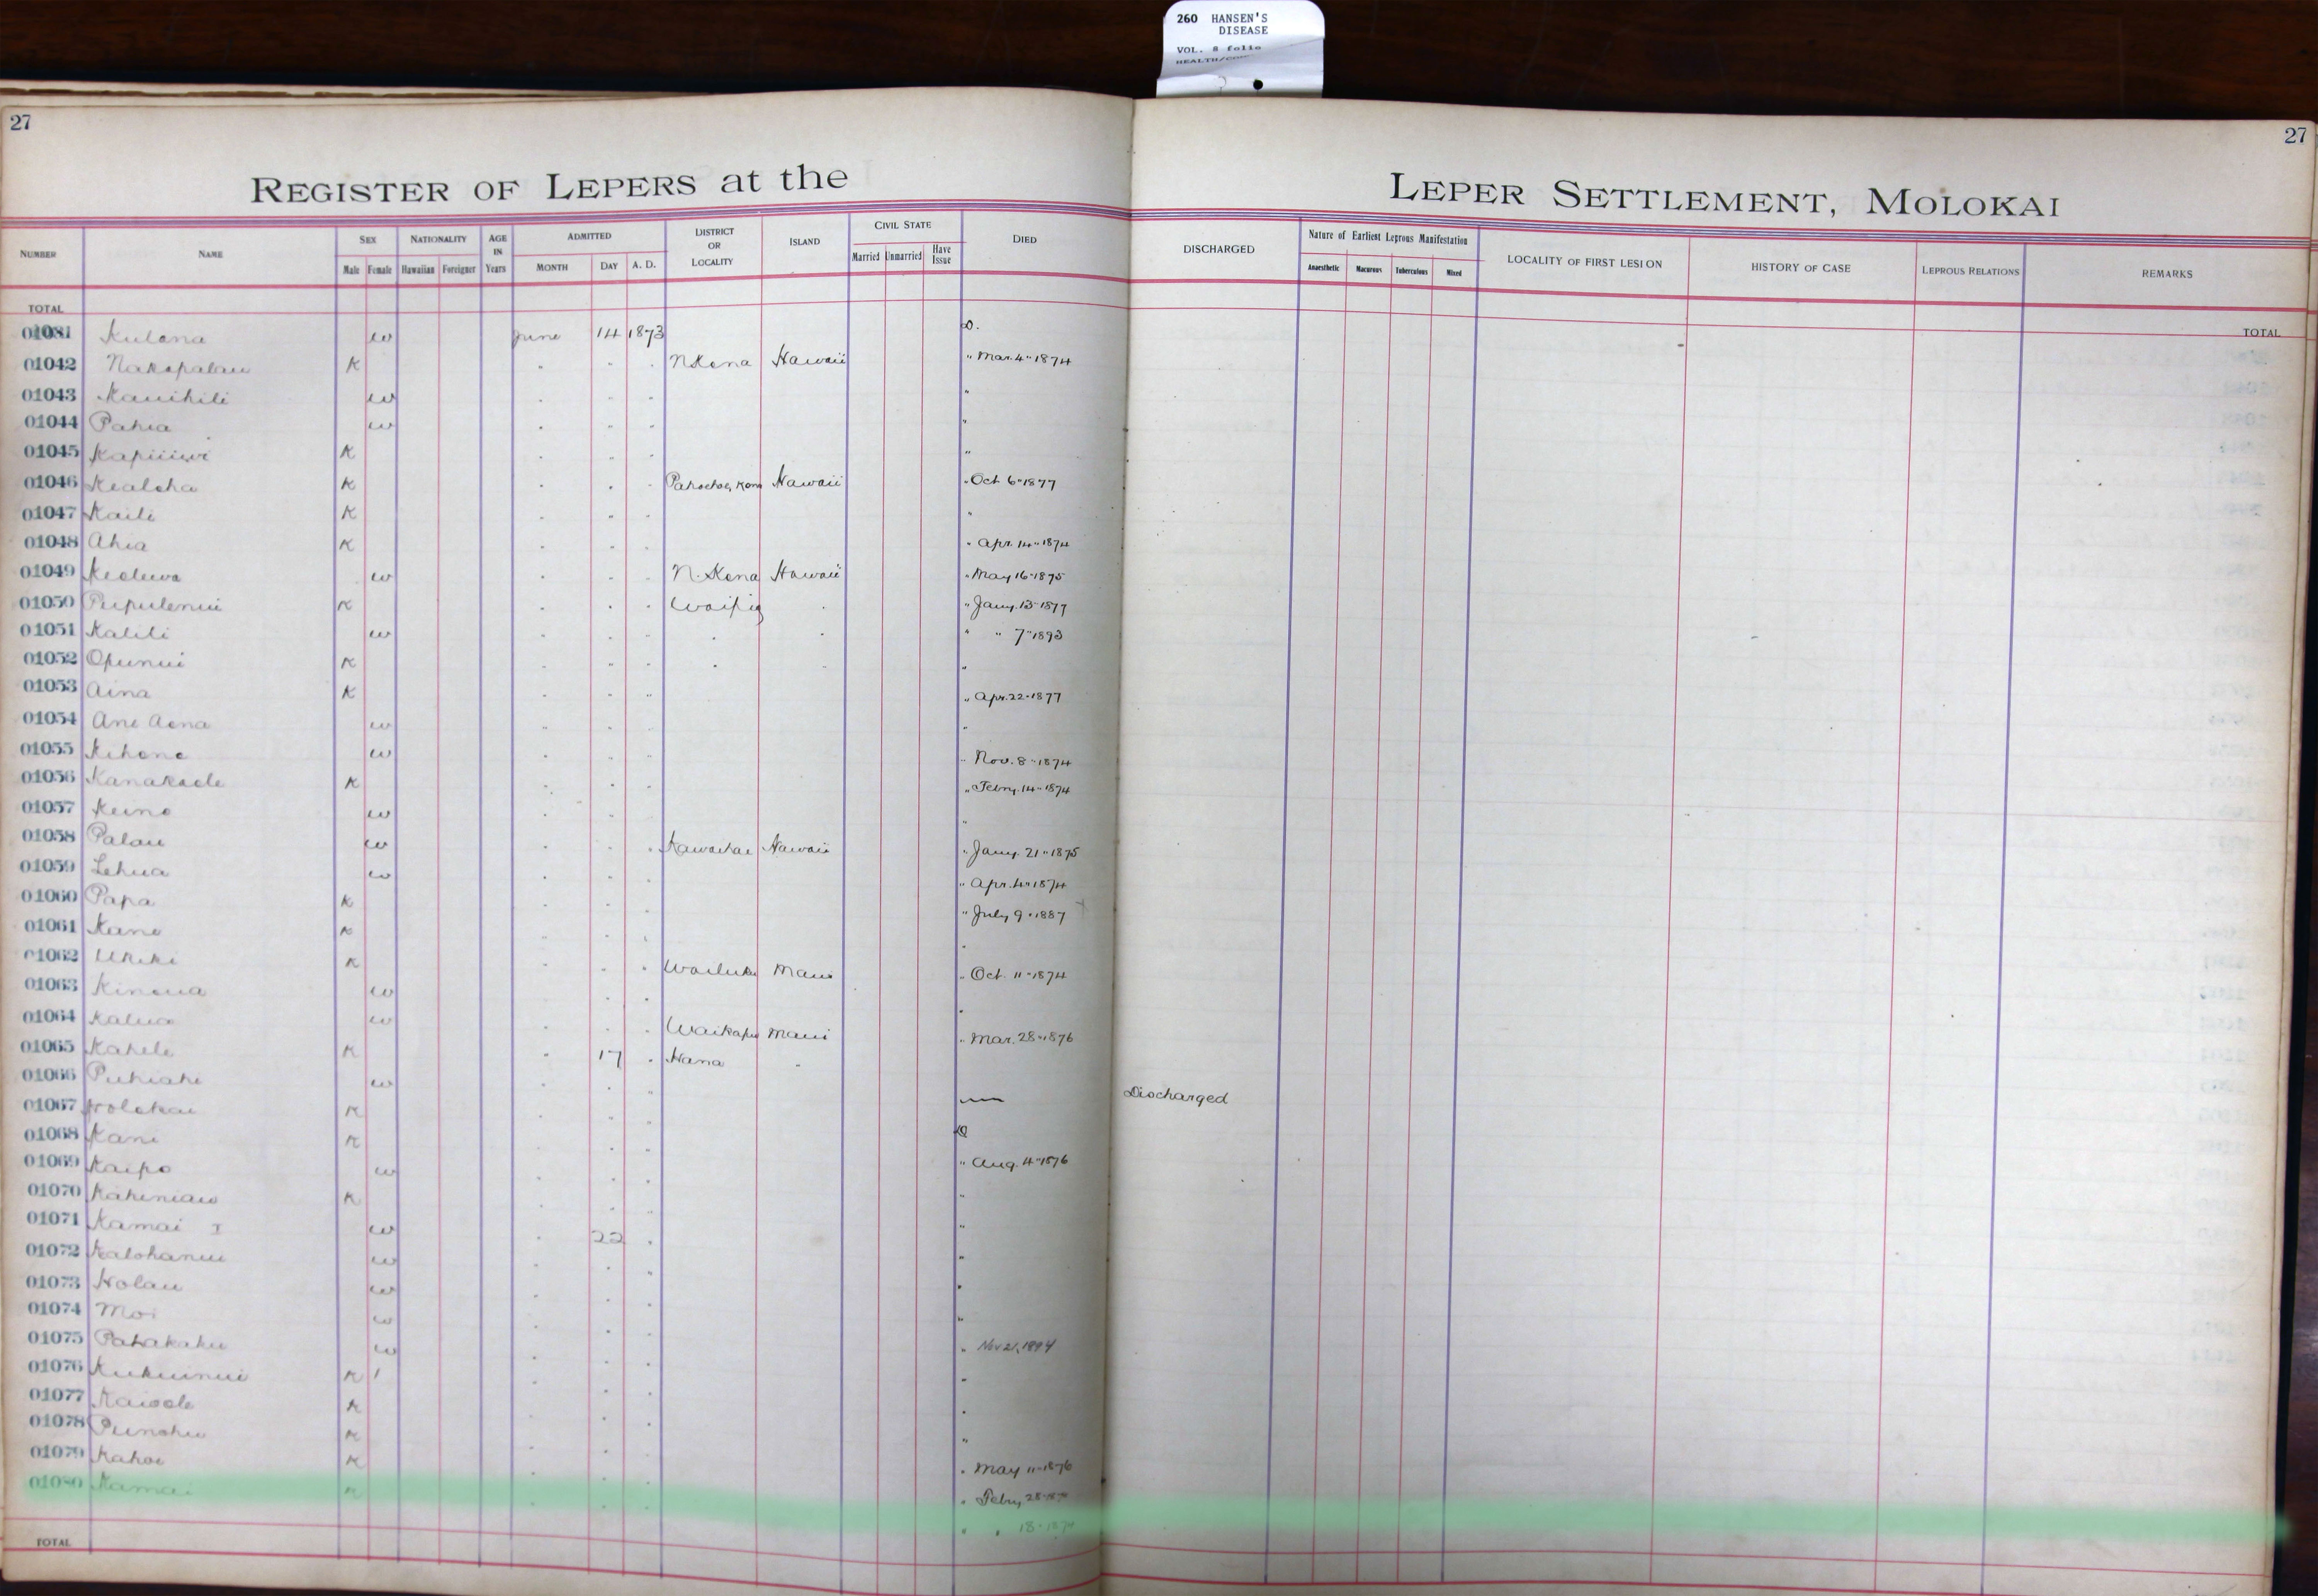 260 HANSEN'S
DISEASE
VOL. 8 folio
27
27
REGISTER OF LEPERS at the LEPER SETTLEMENT, MOLOKAI
NUMBER NAME SEX Male Female NATIONALITY Hawaiian Foreigner AGE IN Years ADMITTED MONTH DAY A. D. DISTRICT OR LOCALITY ISLAND CIVIL STATE Married Unmarried Have Issue DIED DISCHARGED Nature of Earliest Leprous Manifestation Anaesthetic Macurous Tuberculous Mixed LOCALITY OF FIRST LESION HISTORY OF CASE LEPROUS RELATIONS REMARKS
TOTAL TOTAL
Kulana w June 14 1873 D.
01042 Nakopalau K " " " N Kona Hawaii " Mar. 4" 1874
01043 Kauihili w " " " "
01044 Pahia w " " " "
01045 K " " " "
01046 Kealoha K " " " Pahoehoe, Kona Hawaii " Oct 6" 1877
01047 Kaili K " " " "
01048 Ahia K " " " " Apr. 14" 1874
01049 w " " " N. Kona Hawaii " May 16" 1875
01050 Pupulenui K " " " Waipio " " Jany. 13" 1877
01051 Kalili w " " " " " " " 7" 1893
01052 Opunui K " " " " " "
01053 Aina K " " " " Apr. 22" 1877
01054 Ane Aona w " " " "
01055 Kihene w " " " " Nov. 8" 1874
01056 Kanakaole K " " " " Febry. 14" 1874
01057 Keino w " " " "
01058 Palau w " " " Kawaihae Hawaii " Jany. 21" 1875
01059 Lehua w " " " " Apr. 4" 1874
01060 Papa K " " " " July 9" 1887
01061 Kane K " " " "
01062 Ukeke K " " " Wailuku Maui " Oct. 11" 1874
01063 Kinoua w " " " "
01064 Kalua w " " " Waikapu Maui " Mar. 28" 1876
01065 Kahele K " 17 " Hana "
01066 Puhiahi w " " " Discharged
01067 Holokai K " " " D
01068 Kani K " " " " Aug. 4" 1876
01069 Kaipo w " " " "
01070 Kahiniau K " " " "
01071 Kamai I w " 22 " "
01072 Kalohanui w " " " "
01073 Holau w " " " "
01074 Moi w " " " " Nov 21, 1894
01075 Pahakaku w " " " "
01076 Kukuinui K 1 " " " "
01077 Kaiaole K " " " "
01078 Punohu K " " " " May 11" 1876
01079 Kahoe K " " " " Febry. 28"
01080 Kamai K " " " " " 18" 1874
TOTAL